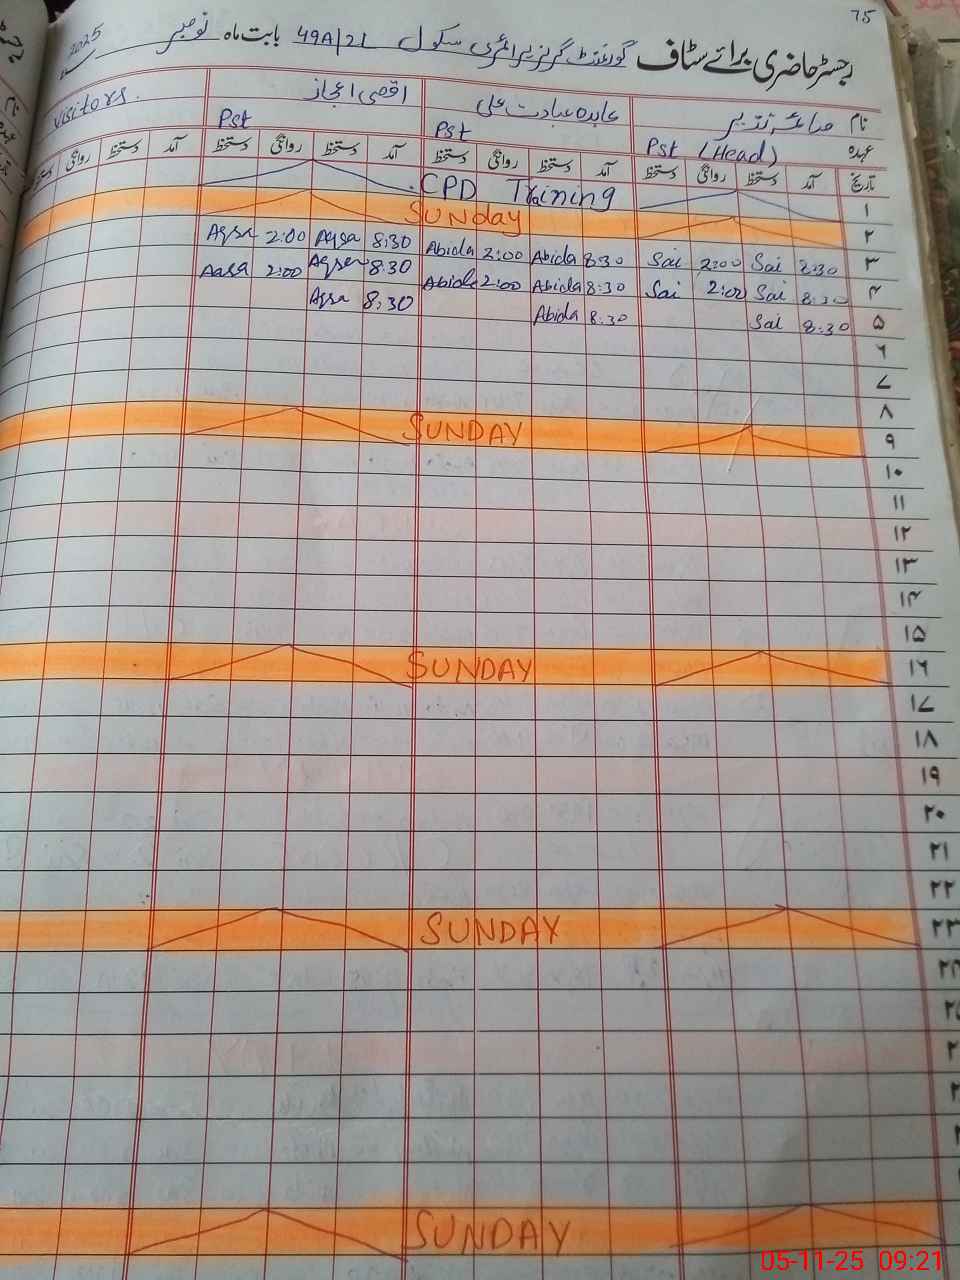 75
رجسٹر حاضری برائے سٹاف گورنمنٹ گرلز پرائمری سکول 49A/2L بابت ماہ نومبر 2025
نام صائمہ نذیر عابدہ عبادت علی اقصیٰ اعجاز visitors.
عہدہ Pst (Head) Pst Pst
تاریخ آمد دستخط روانگی دستخط آمد دستخط روانگی دستخط آمد دستخط روانگی دستخط آمد دستخط روانگی دستخط
۱ CPD Training
۲ SUNday
۳ 8:30 Sai 2:00 Sai 8:30 Abida 2:00 Abida 8:30 Aqsa 2:00 Aqsa
۴ 8:30 Sai 2:00 Sai 8:30 Abida 2:00 Abida 8:30 Aqsa 2:00 Aqsa
۵ 8:30 Sai 8:30 Abida 8:30 Aqsa
۶
۷
۸
۹ SUNDAY
۱۰
۱۱
۱۲
۱۳
۱۴
۱۵
۱۶ SUNDAY
۱۷
۱۸
۱۹
۲۰
۲۱
۲۲
۲۳ SUNDAY
۲۴
SUNDAY
05-11-25 09:21